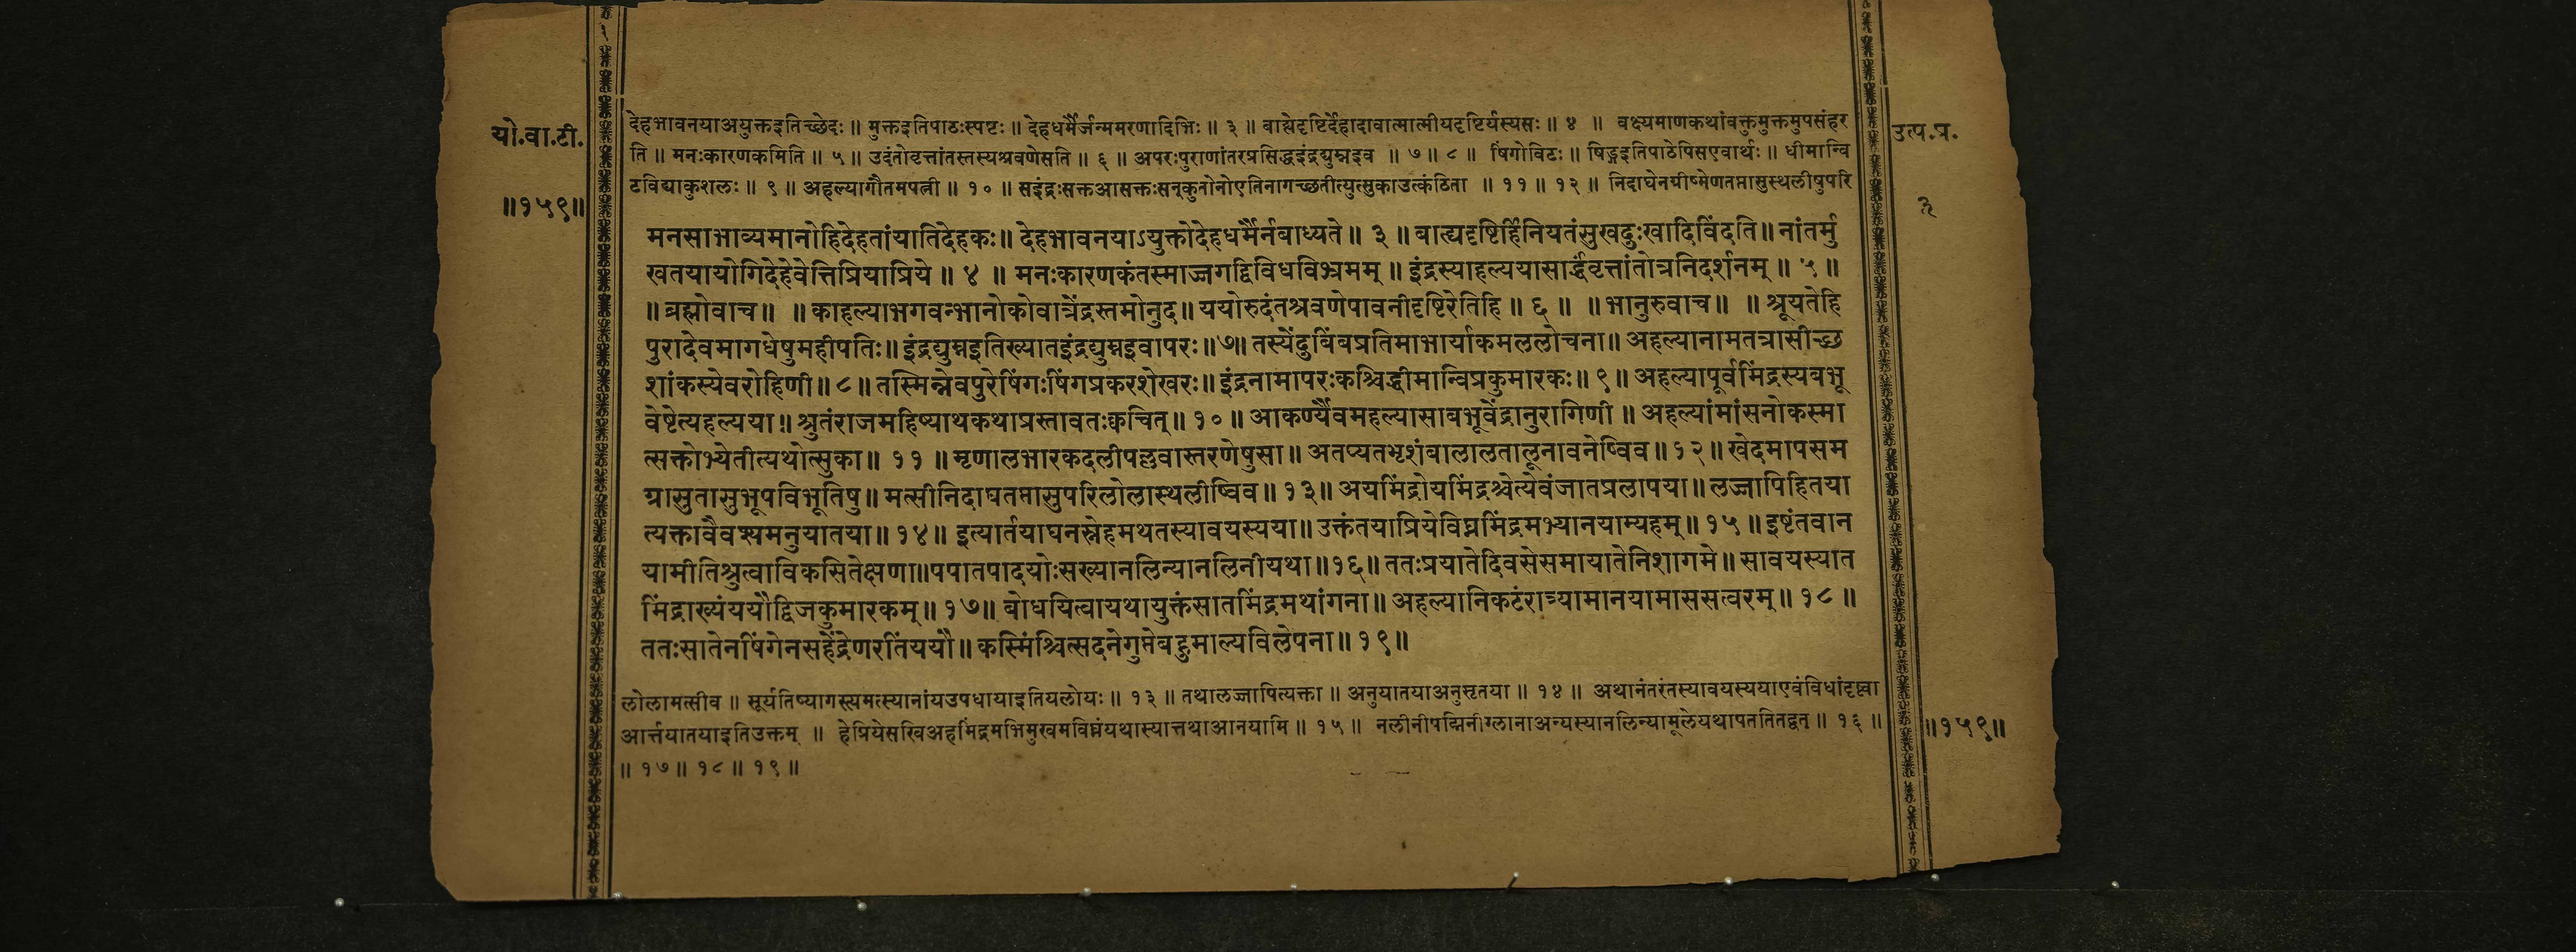 यो.वा.टी.
॥१५९॥
उत्प.प्र.
३
देहभावनयाअयुक्तइतिच्छेदः ॥ मुक्तइतिपाठःस्पष्टः ॥ देहधर्मैर्जन्ममरणादिभिः ॥ ३ ॥ बाह्येदृष्टिर्देहादावात्मात्मीयदृष्टिर्यस्यसः ॥ ४ ॥ वक्ष्यमाणकथांवक्तुमुक्तमुपसंहर
ति ॥ मनःकारणकमिति ॥ ५ ॥ उदंतोवृत्तांतस्तस्यश्रवणेसति ॥ ६ ॥ अपरःपुराणांतरप्रसिद्धइंद्रद्युम्नइव ॥ ७ ॥ ८ ॥ षिंगोविटः ॥ षिड्गइतिपाठेपिसएवार्थः ॥ धीमान्वि
टविद्याकुशलः ॥ ९ ॥ अहल्यागौतमपत्नी ॥ १० ॥ सइंद्रःसक्तआसक्तःसन्कुतोनोएतिनागच्छतीत्युत्सुकाउत्कंठिता ॥ ११ ॥ १२ ॥ निदाघेनग्रीष्मेणतप्तासुस्थलीषुपरि
मनसाभाव्यमानोहिदेहतांयातिदेहकः॥ देहभावनयाऽयुक्तोदेहधर्मैर्नबाध्यते॥ ३ ॥ बात्यदृष्टिर्हिनियतंसुखदुःखादिविंदति॥ नांतर्मु
खतयायोगिदेहेवेत्तिप्रियाप्रिये॥ ४ ॥ मनःकारणकंतस्माज्जगद्विविधविभ्रमम्॥ इंद्रस्याहल्ययासार्द्धंवृत्तांतोत्रनिदर्शनम्॥ ५॥
॥ब्रह्मोवाच॥ ॥काहल्याभगवन्भानोकोवात्रेंद्रस्तमोनुद॥ ययोरुदंतश्रवणेपावनीदृष्टिरेतिहि॥ ६॥ ॥भानुरुवाच॥ ॥ श्रूयतेहि
पुरादेवमागधेषुमहीपतिः॥ इंद्रद्युम्नइतिख्यातइंद्रद्युम्नइवापरः॥७॥ तस्येंदुबिंबप्रतिमाभार्याकमललोचना॥ अहल्यानामतत्रासीच्छ
शांकस्येवरोहिणी॥ ८॥ तस्मिन्नेवपुरेषिंगःषिंगप्रकरशेखरः॥ इंद्रनामापरःकश्चिद्धीमान्विप्रकुमारकः॥ ९॥ अहल्यापूर्वमिंद्रस्यबभू
वेष्टेत्यहल्यया॥ श्रुतंराजमहिष्याथकथाप्रस्तावतःक्वचित्॥ १०॥ आकर्ण्यैवमहल्यासाबभूवेंद्रानुरागिणी॥ अहल्यांमांसनोकस्मा
त्सक्तोभ्येतीत्यथोत्सुका॥ ११ ॥ मृणालभारकदलीपल्लवास्तरणेषुसा॥ अतप्यतभृशंबालालतालूनावनेष्विव॥ १२॥ खेदमापसम
ग्रासुतासुभूपविभूतिषु॥ मत्सीनिदाघतप्तासुपरिलोलास्थलीष्विव॥ १३॥ अयमिंद्रोयमिंद्रश्चेत्येवंजातप्रलापया॥ लज्जापिहितया
त्यक्तावैवश्यमनुयातया॥ १४॥ इत्यार्तयाघनस्नेहमथतस्यावयस्यया॥ उक्तंतयाप्रियेविघ्नमिंद्रमभ्यानयाम्यहम्॥ १५॥ इष्टंतवान
यामीतिश्रुत्वाविकसितेक्षणा॥पपातपादयोःसख्यानलिन्यानलिनीयथा॥१६॥ ततःप्रयातेदिवसेसमायातेनिशागमे॥ सावयस्यात
मिंद्राख्यंययौद्विजकुमारकम्॥ १७॥ बोधयित्वायथायुक्तंसातमिंद्रमथांगना॥ अहल्यानिकटंरात्र्यामानयामाससत्वरम्॥ १८॥
ततःसातेनषिंगेनसहेंद्रेणरतिंययौ॥ कस्मिंश्चित्सदनेगुप्तेबहुमाल्यविलेपना॥ १९॥
लोलामत्सीव ॥ सूर्यतिष्यागस्त्यमत्स्यानांयउपधायाइतियलोयः ॥ १३ ॥ तथालज्जापित्यक्ता ॥ अनुयातयाअनुसृतया ॥ १४ ॥ अथानंतरंतस्यावयस्ययाएवंविधांदृष्ट्वा
आर्त्तयातयाइतिउक्तम् ॥ हेप्रियेसखिअहमिंद्रमभिमुखमविघ्नंयथास्यात्तथाआनयामि ॥ १५ ॥ नलीनीपद्मिनीग्लानाअन्यस्यानलिन्यामूलेयथापततितद्वत् ॥ १६ ॥
॥ १७ ॥ १८ ॥ १९ ॥
॥१५९॥